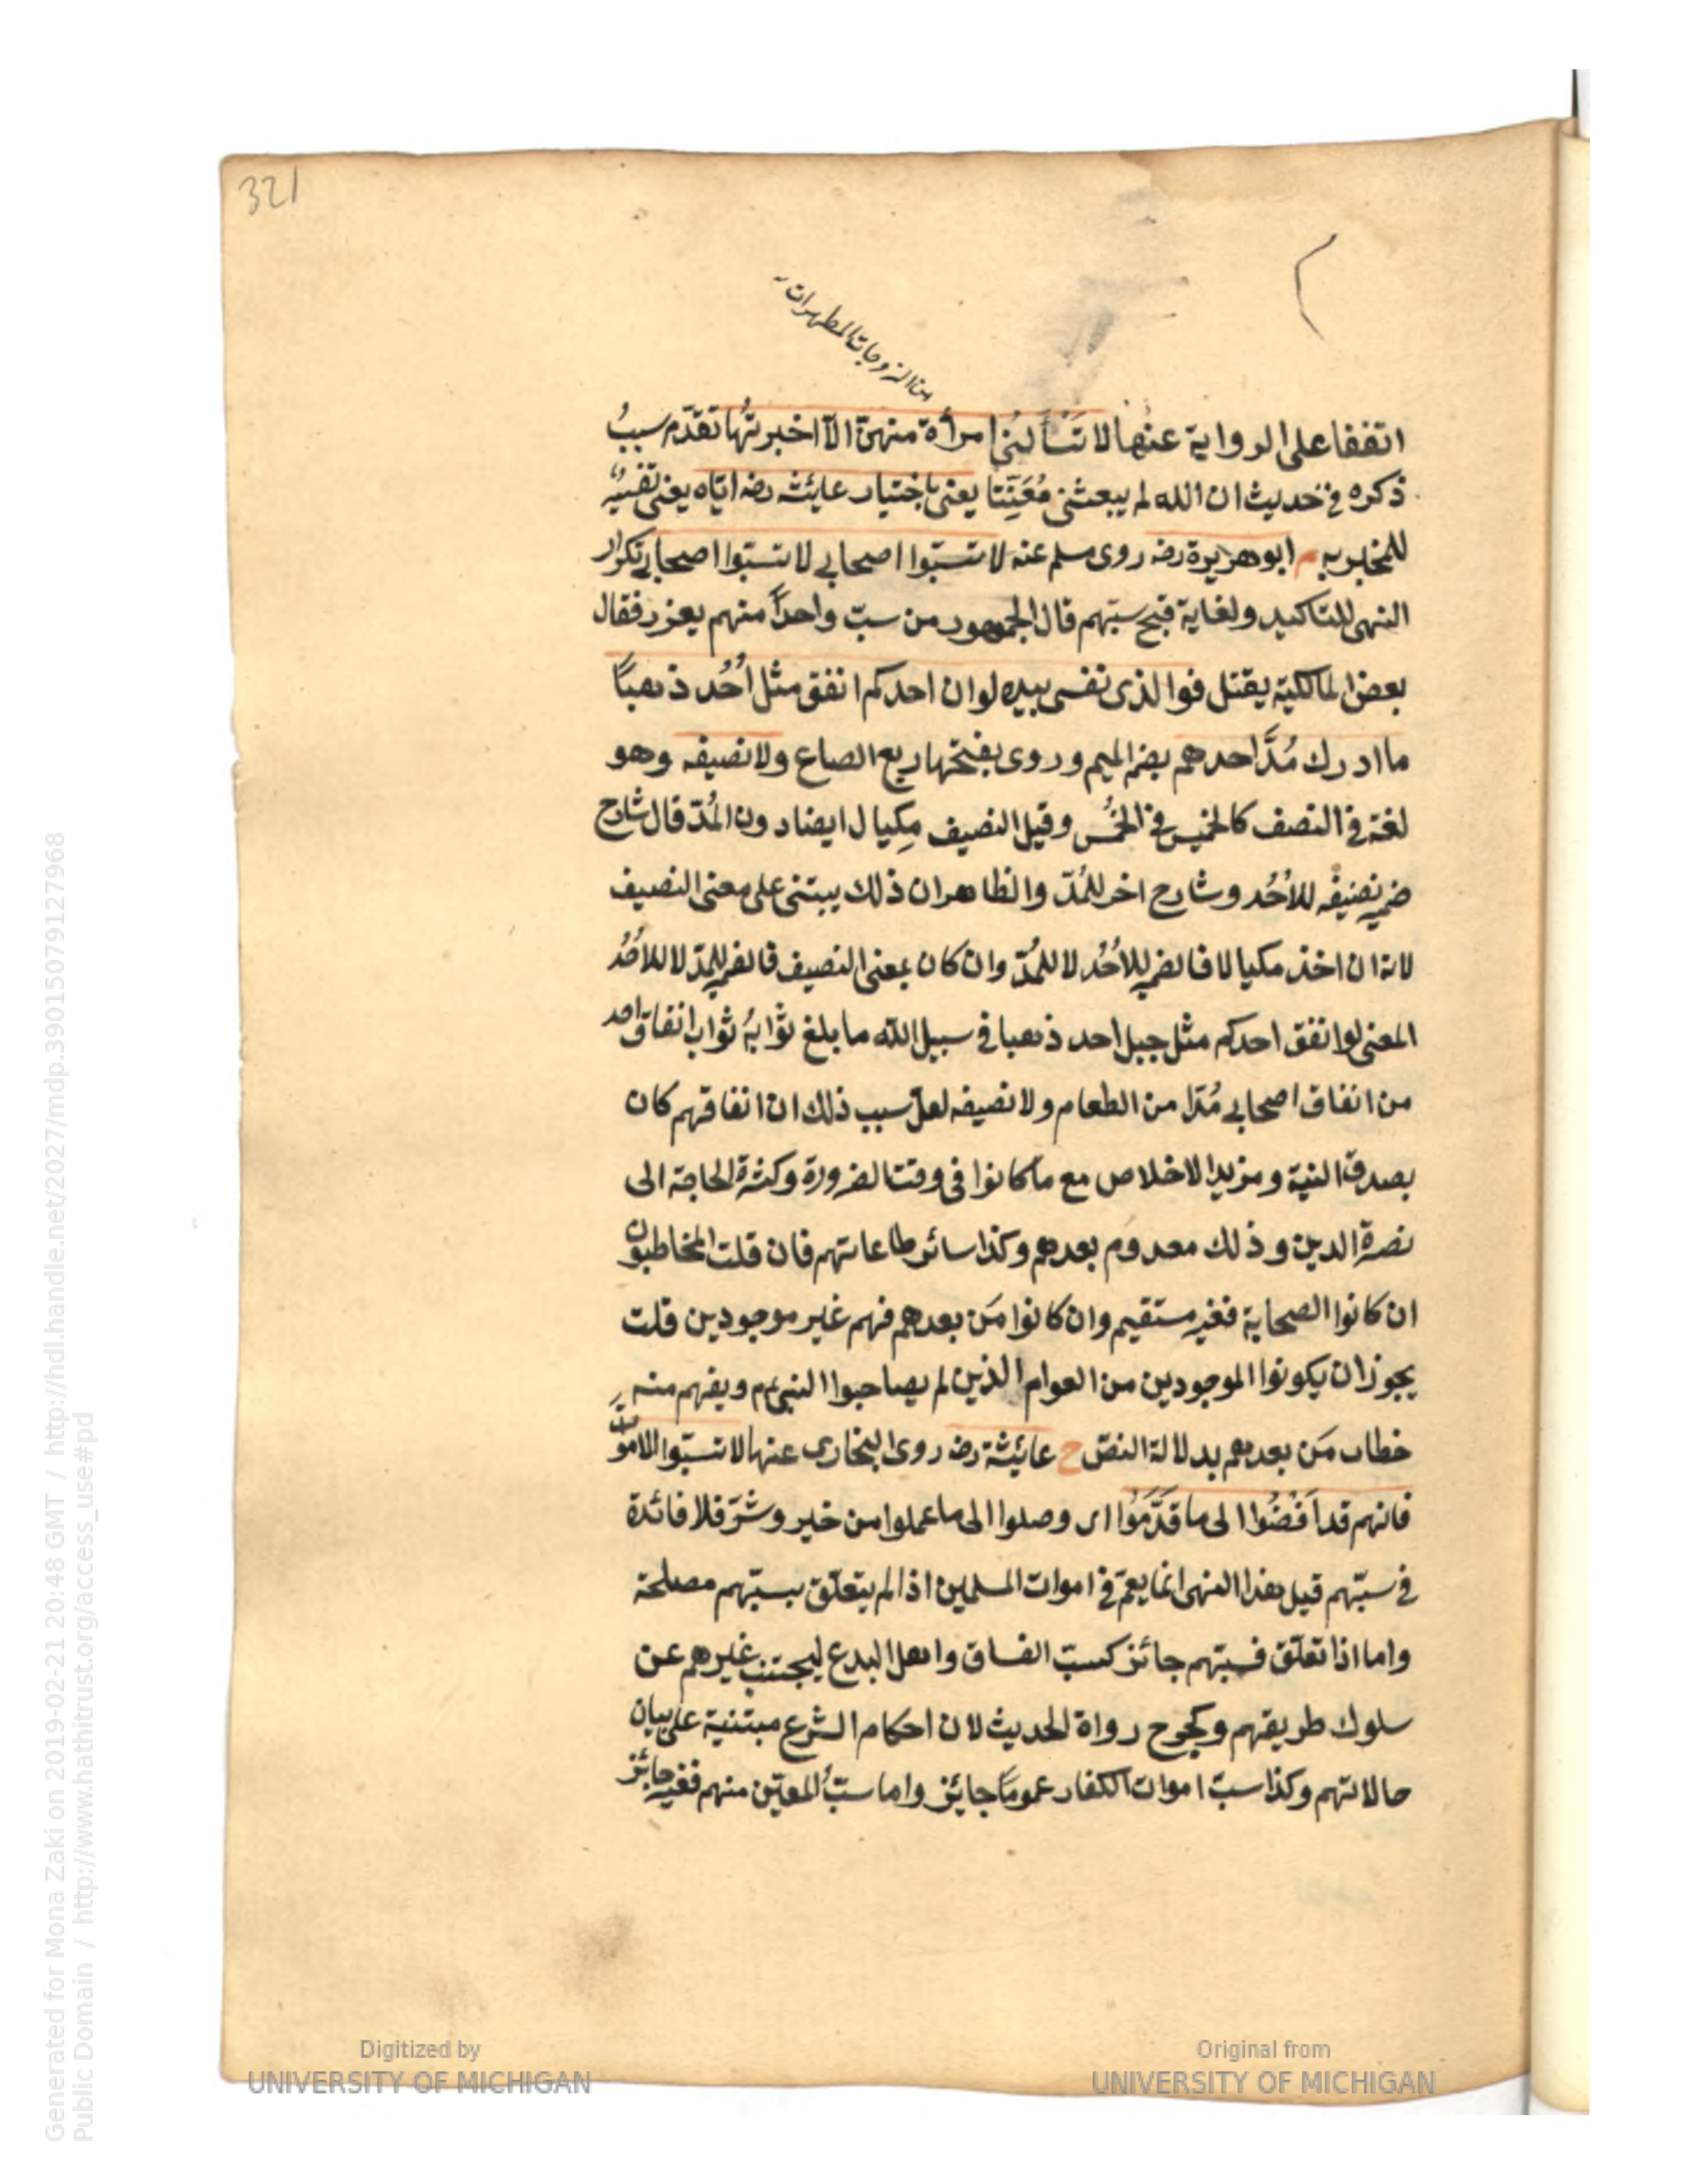 321
من الزوجات المطهرات
اتفقا على الرواية عنها لا تَسْأَلُنى امرأة منهنّ الّا اخبرتُها تقدّم سببُ
ذكره فى حديث ان الله لم يبعثنى مُعَنِّتا يعنى باختيار عايشة رضه ايّاه يعنى تفسيرُ
للمخبر به م ابو هريرة رضه روى مسلم عنه لا تسبّوا اصحابى لا تسبّوا اصحابى تكرار
النهى للتاكيد ولغاية قبح سبّهم قال الجمهور من سبّ واحداً منهم يعزر فقال
بعض المالكية يقتل فوالذى نفسى بيده لو ان احدكم انفق مثل اُحُد ذهبًا
ما ادرك مُدَّ احدهم بضم الميم وروى بفتحها ربع الصاع ولا نصيفه وهو
لغة فى النصف كالخميس فى الخُمُس وقيل النصيف مِكيال ايضا دون المُدّ قال شارح
ضمير نصيفه للاُحُد وشارح اخر للمُدّ والظاهر ان ذلك يبتنى على معنى النصيف
لانه ان اخذ مكيالا فالضمير للاُحُد لا للمُدّ وان كان بمعنى النصيف فالضمير للمدّ لا للاحُد
المعنى لو انفق احدكم مثل جبل احد ذهبا فى سبيل الله ما بلغ ثوابهُ ثواب انفاق احد
من انفاق اصحابى مُدّا من الطعام ولا نصيفه لعلّ سبب ذلك ان انفاقهم كان
بصدق النية ومزيد الاخلاص مع ما كانوا فى وقت الضرورة وكثرة الحاجة الى
نصرة الدين وذلك معدوم بعدهم وكذا سائر طاعاتهم فان قلت المخاطبون
ان كانوا الصحابة فغير مستقيم وان كانوا مَن بعدهم فهم غير موجودين قلت
يجوز ان يكونوا الموجودين من العوام الذين لم يصاحبوا النبى م ويفهم منه
خطاب مَن بعدهم بدلالة النصّ خ عائيشة رضه روى البخارى عنها لا تسبّوا الاموات
فانهم قد اَفْضَوْا الى ما قَدَّمُوا اى وصلوا الى ما عملوا من خير وشرّ فلا فائدة
فى سبّهم قيل هذا النهى انما يعمّ فى اموات المسلمين اذا لم يتعلّق بسبّهم مصلحة
واما اذا تعلّق فسبّهم جائز كسبّ الفساق واهل البدع ليجتنب غيرهم عن
سلوك طريقهم وكجرح رواة الحديث لان احكام الشرع مبتنية على بيان
حالاتهم وكذا سبّ اموات الكفار عموماً جايز واما سبُّ المعيّن منهم فغير جائز
Digitized by
UNIVERSITY OF MICHIGAN
Original from
UNIVERSITY OF MICHIGAN
Generated for Mona Zaki on 2019-02-21 20:48 GMT / http://hdl.handle.net/2027/mdp.39015079127968
Public Domain / http://www.hathitrust.org/access_use#pd